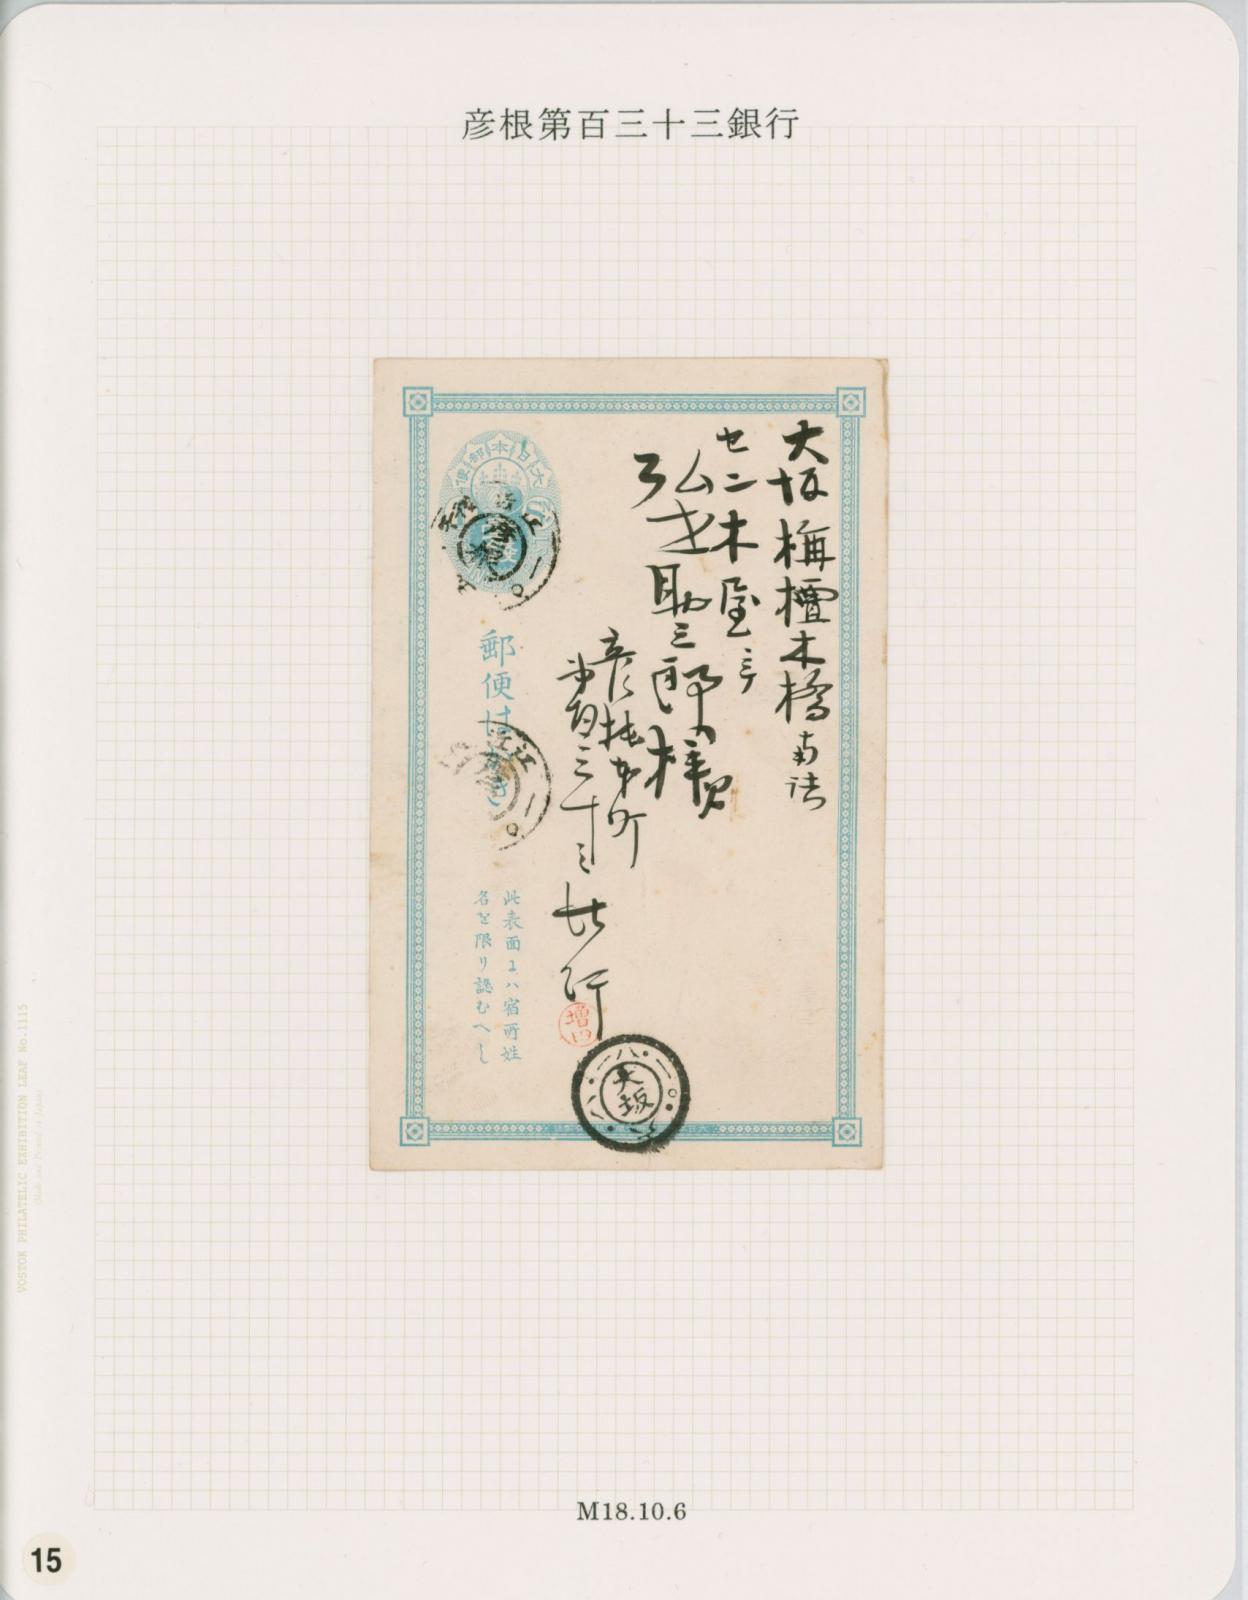 彦根第百三十三銀行
大坂栴檀木橋南詰
セン木屋ニテ
弘世助三郎様
彦根本町
第百三十三銀行
増田
大日本郵便
郵便はがき
此表面ニハ宿所姓
名を限り認むへし
近江
近江
大坂
M18.10.6
15
VOSTOK PHILATELIC EXHIBITION LEAF No.1115
(Made and Printed in Japan)